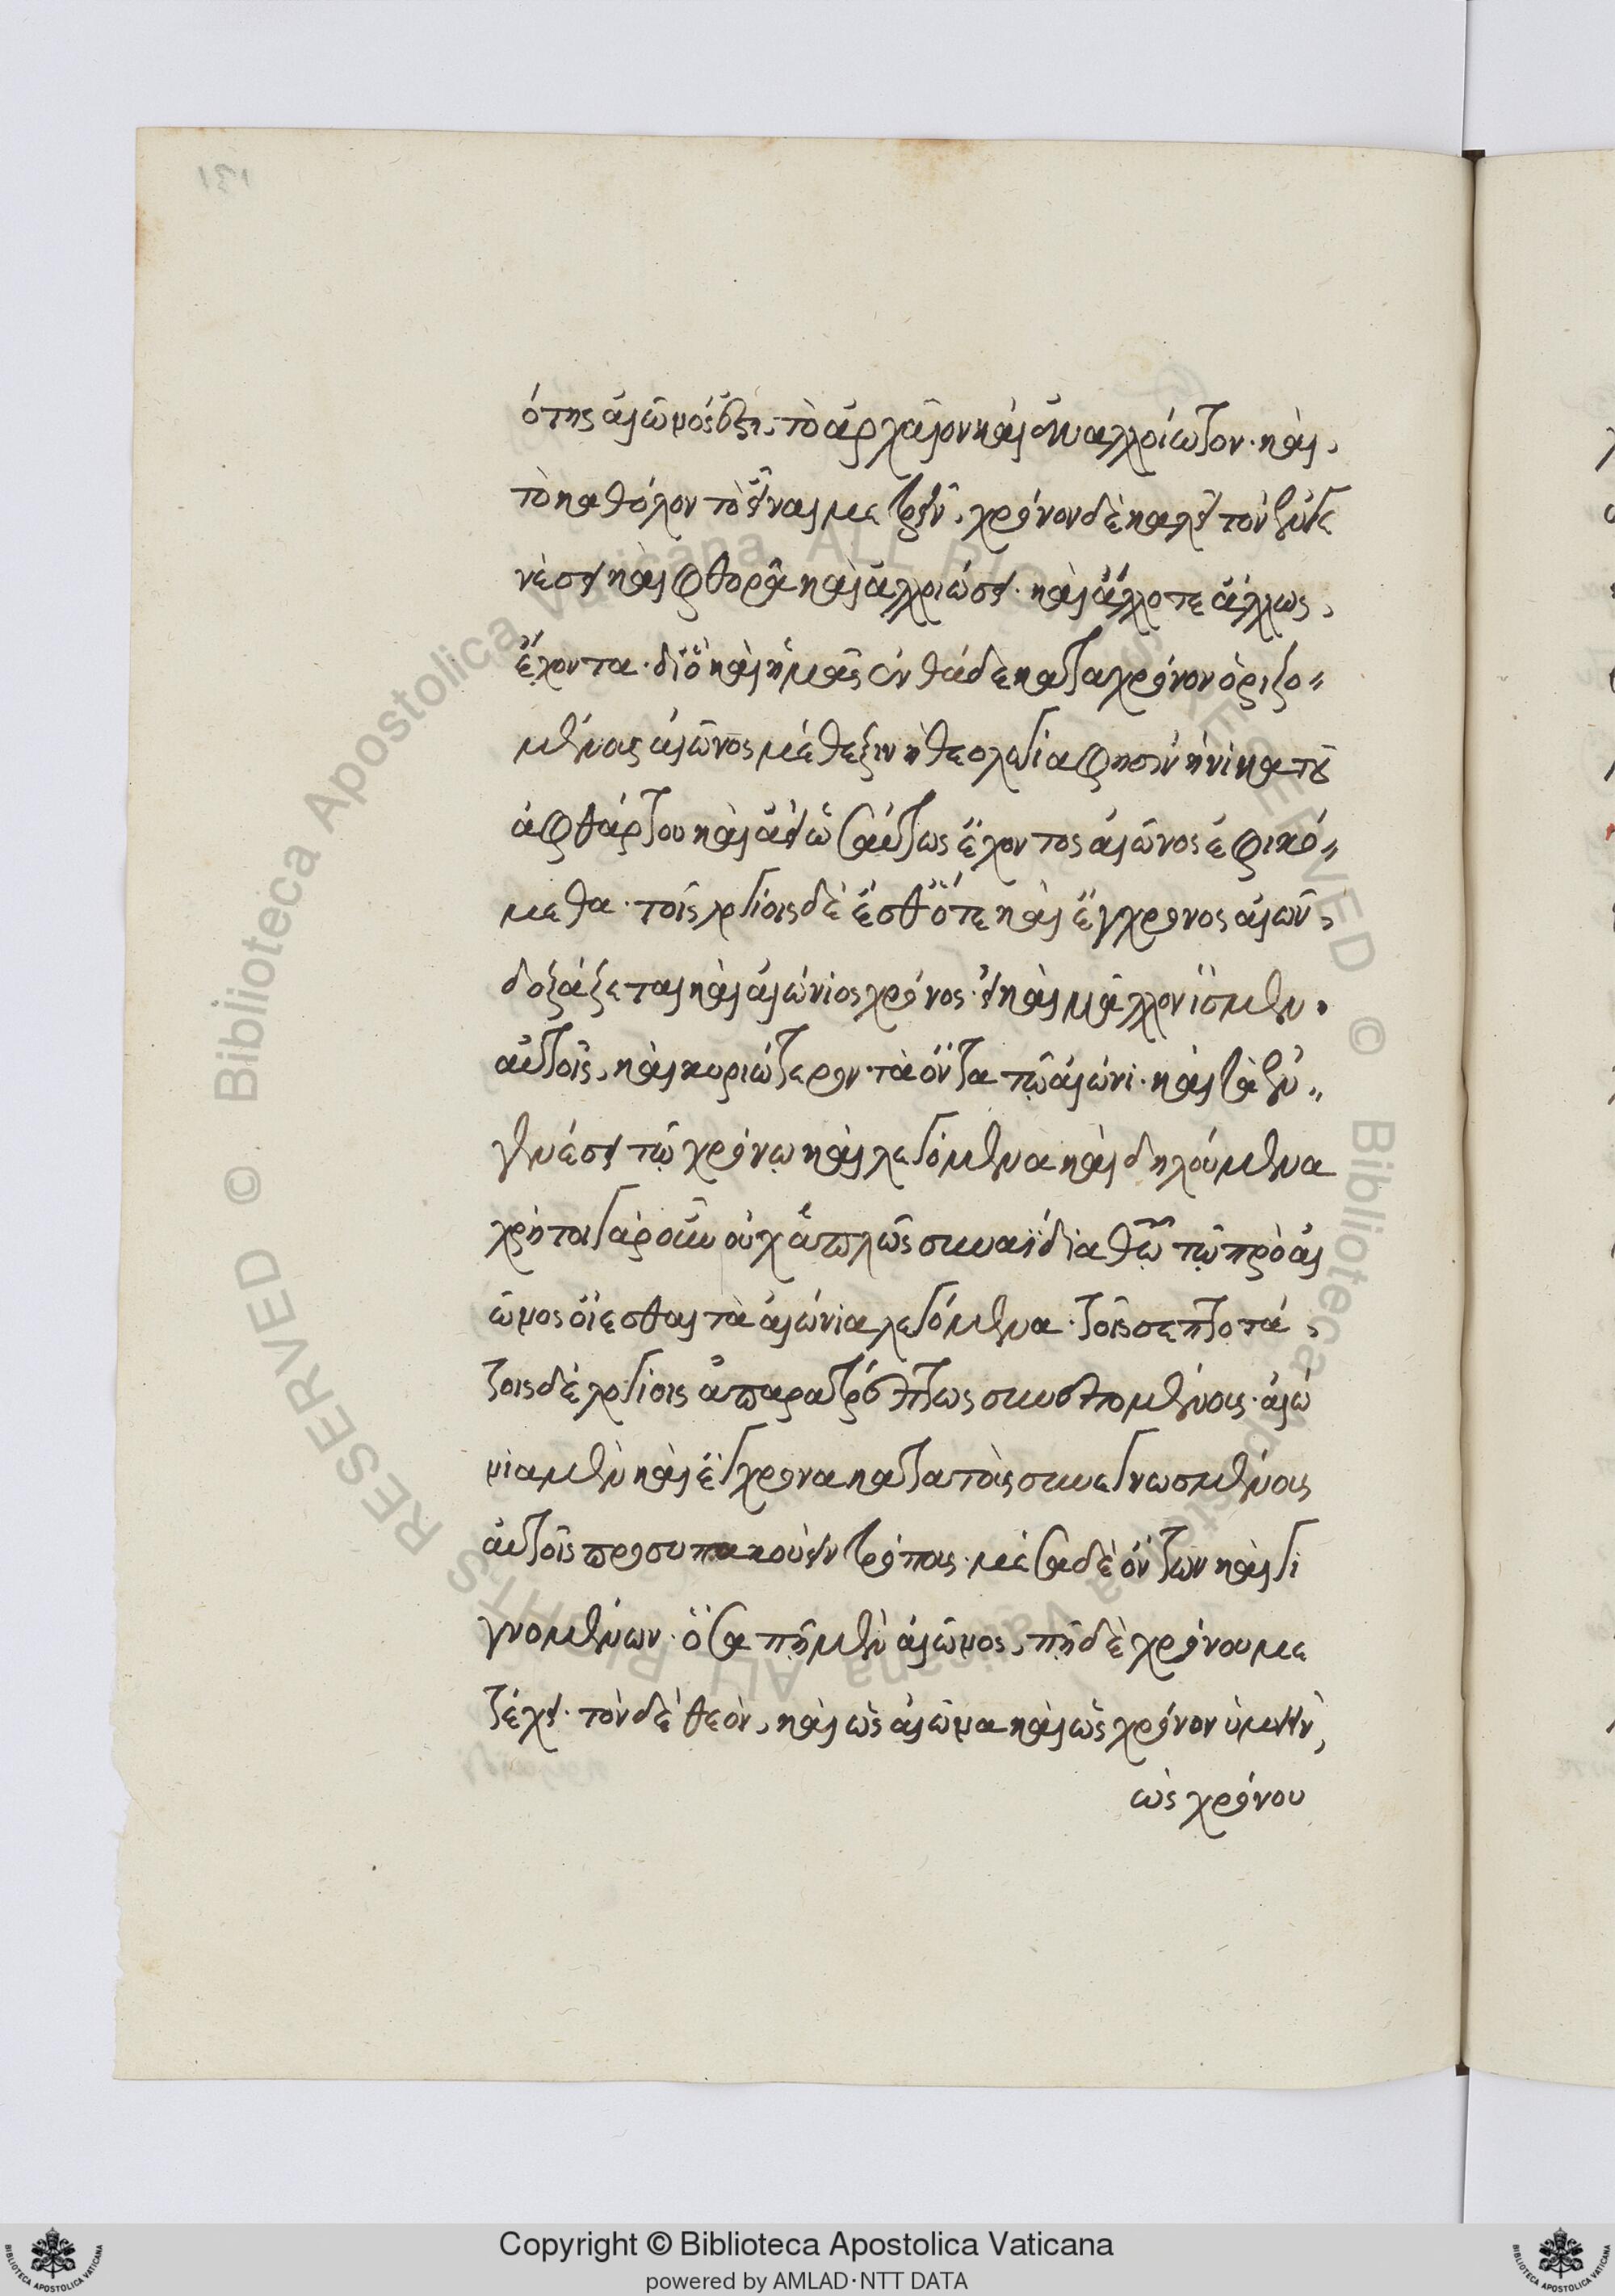 ότης αἰῶνός ἐστι, τὸ ἀρχαῖον καὶ ἀναλλοίωτον· καὶ,
τὸ καθόλον τὸ εἶναι μετρεῖν, χρόνον δὲ καλεῖ τὸν ἐν γε
νέσει καὶ φθορᾶ καὶ ἀλλοιώσει· καὶ ἄλλοτε ἄλλως,
ἔχοντα· διὸ καὶ ἡμᾶς ἐνθάδε κατὰ χρόνον ὁριζο"
μένους αἰῶνος μέθεξιν ἡ θεολογία φησὶν ἡνίκα τοῦ
ἀφθάρτου καὶ ἀεὶ ὡσαύτως ἔχοντος αἰῶνος ἐφικό"
μεθα· τοῖς λογίοις δὲ ἔσθ' ὅτε καὶ ἔγχρονος αἰῶν,
δοξάζεται καὶ αἰώνιος χρόνος· εἰ καὶ μᾶλλον ἴσμεν,
αὐτοῖς, καὶ κυριώτερον· τὰ ὄντα τῷ αἰώνι· καὶ τὰ ἐν"
γενέσει τῷ χρόνῳ καὶ λεγόμενα καὶ δηλούμενα
χρὴ τοιγαροῦν οὐχ ἁπλῶς συναΐδια θεῷ τῷ πρὸ αἰ
ῶνος οἴεσθαι τὰ αἰώνια λεγόμενα· τοῖς σεπτοτά,
τοις δὲ λογίοις ἀπαρατρέπτως συνεπομένους· αἰώ
νια μὲν καὶ ἔγχρονα κατὰ τοὺς συνεγνωσμένους
αὐτοῖς προσυπακούειν τρόπους· μέσα δὲ ὄντων καὶ γι
γνομένων· ὅσα πῇ μὲν αἰῶνος, πῇ δὲ χρόνου με
τέχει· τὸν δὲ θεὸν, καὶ ὡς αἰῶνα καὶ ὡς χρόνον ὑμνεῖν,
ὡς χρόνου
Copyright © Biblioteca Apostolica Vaticana
powered by AMLAD·NTT DATA